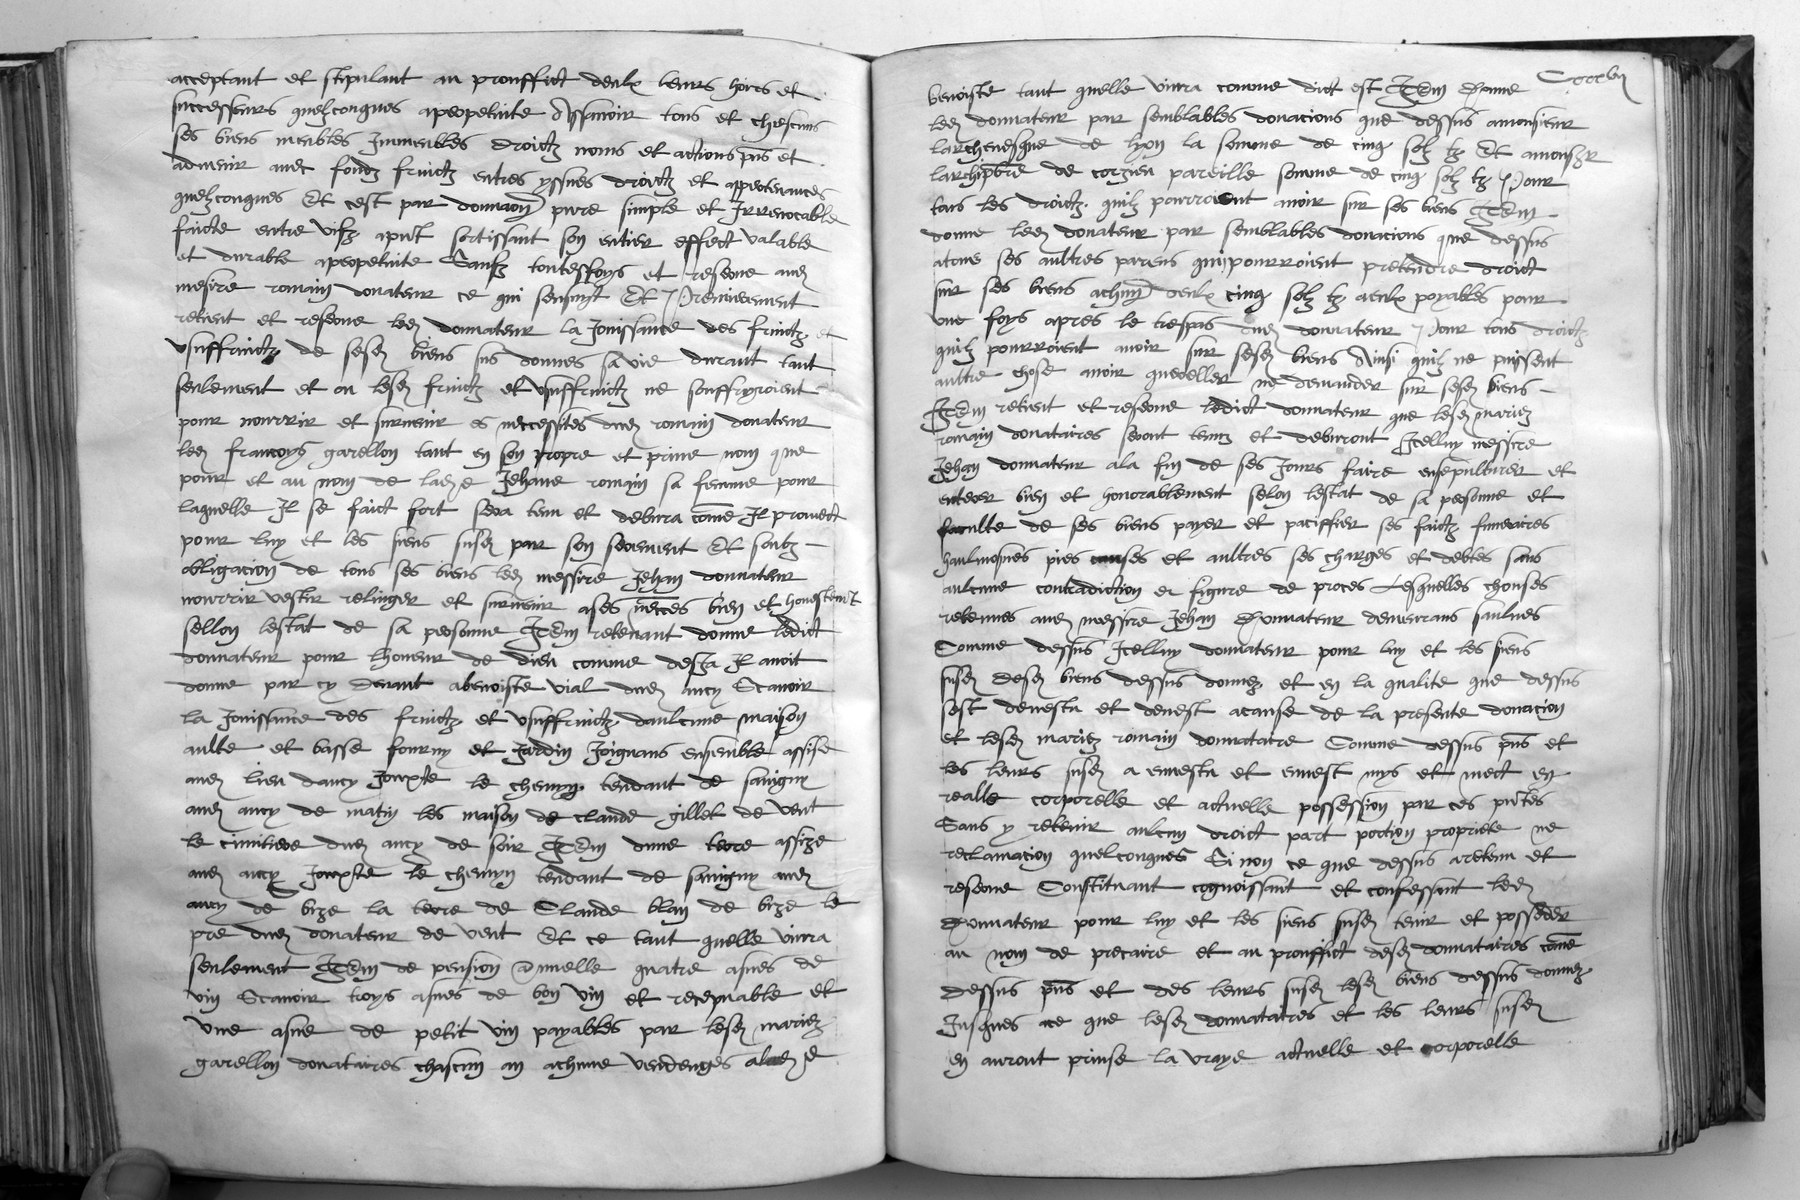 acceptant et stipulant au prouffict deulx leurs hoirs et
successeurs quelzconques a perpetuite Assauoir tous et chescuns
ses biens meubles Immeubles droictz noms et actions pns et
aduenir auec fondz fruictz entres yssues droictz et appertenances
quelzconques Et cest par donnacion pure simple et Irreuocable
faicte entre vifz apnt sortissant son entier effect valable
et durable a perpetuite Saufz toutesfoys et reserue aud
messire romain donateur ce qui sensuyt Et Premierement
retient et reserue led donnateur la Jouissance des fruictz et
vsuffruictz de sesd biens sus donnes sa vie durant tant
seulement et ou lesd fruictz et vsuffruictz ne souffiroient
pour nourrir et suruenir es neccessites dud romain donateur
led francoys garellon tant en son propre et priue nom que
pour et au nom de lade Jehane romain sa femme pour
laquelle Il se faict fort sera tenu et debura come Il promect
pour luy et les siens susd par son serement Et soubz
obligacion de tous ses biens led messire Jehan donnateur
nourrir vestir relinger et suruenir a ses necces bien et honestemt
sellon lestat de sa personne Item retenant donne ledict
donnateur pour lhoneur de dieu comme desja Il auoit
donne par cy deuant a benoiste vial dud ancy Scauoir
la Jouissance des fruictz et vsuffruictz daulcune maison
aulte et basse fourny et Jardin Joignans ensemble assise
aud lieu dancy Jouxte le chemyn tendant de sauigny
aud ancy de matin les maison de claude gillet de vent
le cimitiere dud ancy de soir Item dune terre assize
aud ancy Jouxte le chemyn tendant de sauigny aud
ancy de bize la terre de Claude blan de bize le
pre dud donateur de vent Et ce tant quelle viura
seulement Item de pension annuelle quatre asnes de
vin Scauoir troys asnes de bon vin et recepuable et
vne asne de petit vin payables par lesd mariez
garellon donataires chascun an a chune vendenges a lad
Ccccvii
benoiste tant quelle viura comme dict est Item Donne
led donnateur par semblables donacions que dessus a monsieur
larcheuesque de lyon la somme de cinq solz tz Et a monsr
larchipbre de corzieu pareille somme de cinq solz tz Pour
tous les droictz quilz pourroient auoir sur ses biens Item
donne led donateur par semblables donacions que dessus
a tous ses aultres parens qui pourroient pretendre droict
sur ses biens a chun deulx cinq solz tz a eulx payables pour
vne foys apres le trespas dud donnateur Pour tous droictz
quilz pourroient auoir sur sesd biens Ainsi quilz ne puissent
aultre chose auoir quereller ne demander sur sesd biens
Item retient et reserue ledict donnateur que lesd mariez
romain donataires seront tenuz et deburont Icelluy messire
Jehan donnateur a la fin de ses Jours faire ensepulturer et
enterer bien et honorablement selon lestat de sa personne et
faculte de ses biens payer et paciffier ses faictz funeraires
haulmosnes pies causes et aultres ses charges et debtes sans
aulcune contradiction et figure de proces Lesquelles chouses
retenues aud messire Jehan Donnateur demeurans saulues
Comme dessus Icelluy donnateur pour luy et les siens
susd desd biens dessus donnez et en la qualite que dessus
sest deuestu et deuest a cause de la presente donacion
et lesd mariez romain donnataire Comme dessus pns et
les leurs susd a enuestu et enuest mys et mect en
realle corporelle et actuelle possession par ces pntes
Sans y retenir aulcun droict part portion propriete ne
reclamacion quelconques Si non ce que dessus a retenu et
reserue Constituant cognoissant et confessant led
Donnateur pour luy et les siens susd tenir et posseder
au nom de precaire et au prouffict desd donnataires come
dessus pns et des leurs susd lesd biens dessus donnez
Jusques a ce que lesd donnataires et les leurs susd
en auront prinse la vraye actuelle et corporelle